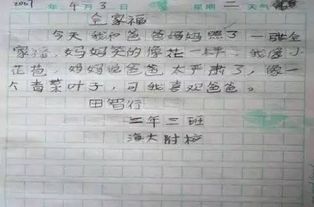 2007年4月3日 星期二 天气
全家福
今天我和爸爸妈妈照了一张全
家福,妈妈笑的像花一样,我像小
花苞,妈妈说爸爸太严肃了,像一
个青菜叶子,可我喜欢爸爸。
田智行
二年三班
海大附校